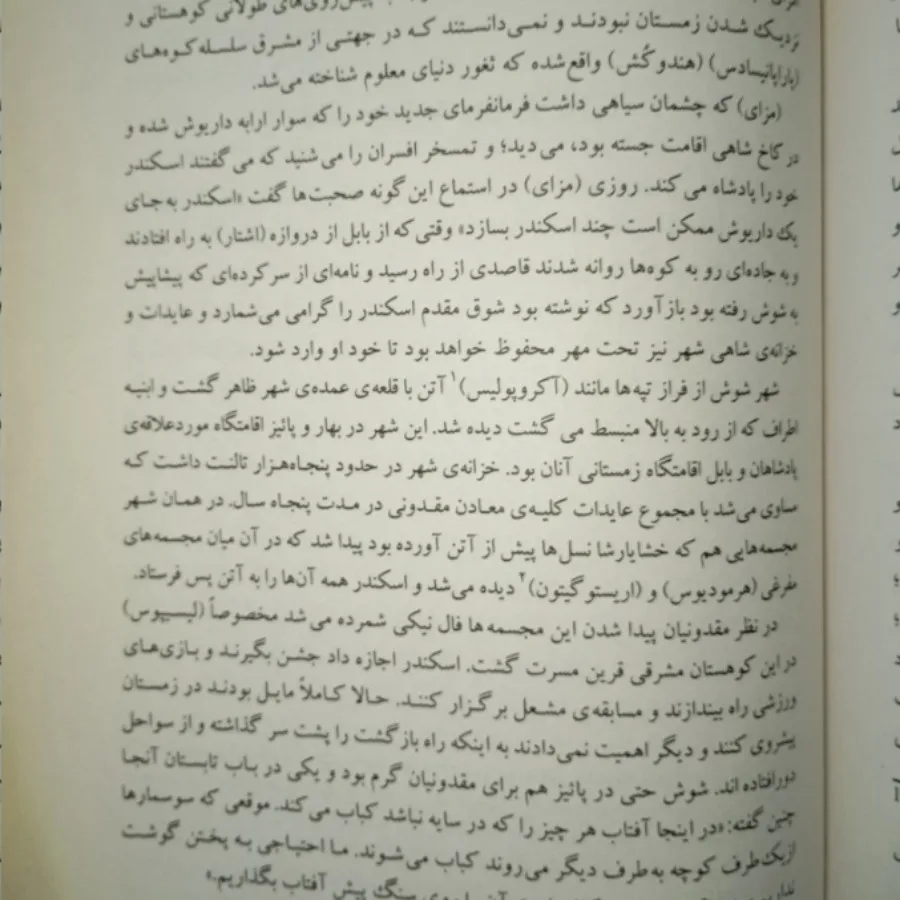 پیش‌روی‌های طولانی کوهستانی و
نزدیک شدن زمستان نبودند و نمی‌دانستند که در جهتی از مشرق سلسله کوه‌های
(پاراپانیسادس) (هندوکُش) واقع‌شده که ثغور دنیای معلوم شناخته می‌شد.
(مزای) که چشمان سیاهی داشت فرمانفرمای جدید خود را که سوار ارابه داریوش شده و
در کاخ شاهی اقامت جسته بود، می‌دید؛ و تمسخر افسران را می‌شنید که می‌گفتند اسکندر
خود را پادشاه می‌کند. روزی (مزای) در استماع این گونه صحبت‌ها گفت «اسکندر به جای
یک داریوش ممکن است چند اسکندر بسازد» وقتی که از بابل از دروازه (اشتار) به راه افتادند
و به جاده‌ای رو به کوه‌ها روانه شدند قاصدی از راه رسید و نامه‌ای از سرکرده‌ای که پیشاپیش
به شوش رفته بود باز آورد که نوشته بود شوق مقدم اسکندر را گرامی می‌شمارد و عایدات و
خزانه‌ی شاهی شهر نیز تحت مهر محفوظ خواهد بود تا خود او وارد شود.
شهر شوش از فراز تپه‌ها مانند (آکروپولیس)۱ آتن با قلعه‌ی عمده‌ی شهر ظاهر گشت و ابنیه
اطراف که از رود به بالا منبسط می گشت دیده شد. این شهر در بهار و پائیز اقامتگاه موردعلاقه‌ی
پادشاهان و بابل اقامتگاه زمستانی آنان بود. خزانه‌ی شهر در حدود پنجاه‌هزار تالنت داشت که
مساوی می‌شد با مجموع عایدات کلیه‌ی معادن مقدونی در مدت پنجاه سال. در همان شهر
مجسمه‌هایی هم که خشایارشا نسل‌ها پیش از آتن آورده بود پیدا شد که در آن میان مجسمه‌های
مفرغی (هرمودیوس) و (اریستوگیتون)۲ دیده می‌شد و اسکندر همه آن‌ها را به آتن پس فرستاد.
در نظر مقدونیان پیدا شدن این مجسمه‌ها فال نیکی شمرده می‌شد مخصوصاً (لیسیپوس)
در این کوهستان مشرقی قرین مسرت گشت. اسکندر اجازه داد جشن بگیرند و بازی‌های
ورزشی راه بیندازند و مسابقه‌ی مشعل برگزار کنند. حالا کاملاً مایل بودند در زمستان
پیشروی کنند و دیگر اهمیت نمی‌دادند به اینکه راه بازگشت را پشت سر گذاشته و از سواحل
دورافتاده اند. شوش حتی در پائیز هم برای مقدونیان گرم بود و یکی در باب تابستان آنجا
چنین گفته: «در اینجا آفتاب هر چیز را که در سایه نباشد کباب می‌کند. موقعی که سوسمارها
ازیک‌طرف کوچه به‌طرف دیگر می‌روند کباب می‌شوند. ما احتیاجی به پختن گوشت
سنگ پیش آفتاب بگذاریم.»